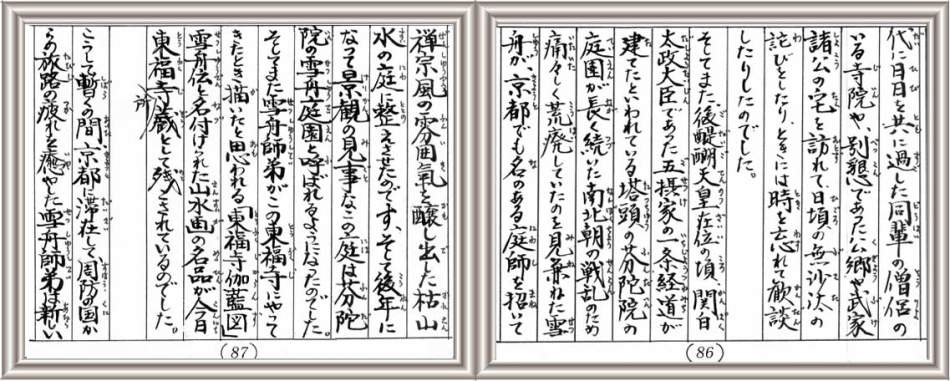 代に日日を共に過した同輩の僧侶の
いる寺院や、別懇であった公郷や武家
諸公の宅を訪れて、日頃の無沙汰の
詫びをしたり、ときには時を忘れて歓談
したりしたのでした。
そしてまた、後醍醐天皇在位の頃、関白
太政大臣であった五摂家の一条経道が
建てたといわれている塔頭の芬陀院の
庭園が長く続いた南北朝の戦乱のため
痛々しく荒廃していたのを見兼ねた雪
舟が、京都でも名のある庭師を招いて
(86)
禅宗風の雰囲気を醸し出した枯山
水の庭に整えさせたのです。そして後年に
なって景観の見事なこの庭は芬陀
院の雪舟庭園と呼ばれるようになったのでした。
そしてまた雪舟師弟がこの東福寺にやって
きたとき描いたと思われる「東福寺伽藍図」
雪舟伝と名付けられた山水画の名品が今日
東福寺所蔵として残こされているのでした。
こうして暫くの間、京都に滞在して周防の国か
らの旅路の疲れを癒やした雪舟師弟は新しい
(87)